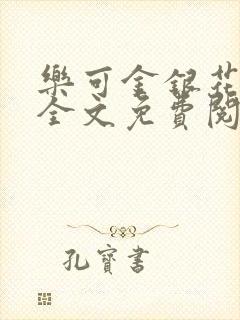 樂可金銀花
全文免費閱
孔寶書